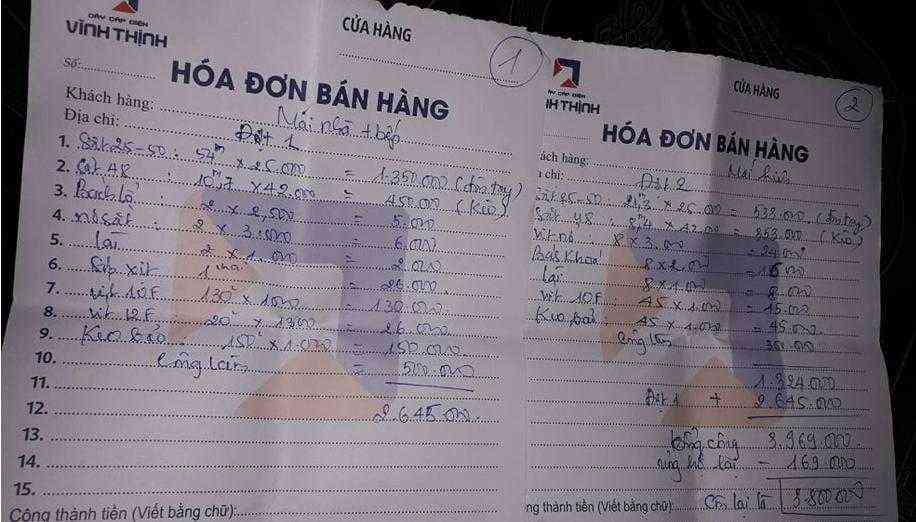 DÂY CÁP ĐIỆN
VĨNH THỊNH
CỬA HÀNG
1
Số:
HÓA ĐƠN BÁN HÀNG
Khách hàng: Mái nhà + bếp
Địa chỉ: Đợt 1
1. Sắt 25-50 : 54m × 25.000 = 1.350.000 (đòn tay)
2. : 10m,7 × 42.000 = 450.000 (Kèo)
3. 2 × 2,500 = 5.000
4. nở sắt : 2 × 3.000 = 6.000
5. 2 × 1.000 = 2.000
6. xịt 1 = 26.000
7. vít 10F 130c × 1000 = 130.000
8. vít 12F 20c × 1300 = 26.000
9. 150c × 1.000 = 150.000
10. công = 500.000
11.
12. 2.645.000
13.
14.
15.
Cộng thành tiền (Viết bằng chữ):
ÂY CÁP ĐIỆN
NH THỊNH
CỬA HÀNG
2
HÓA ĐƠN BÁN HÀNG
ách hàng: Mái
chỉ: Đợt 2
Sắt 25-50 : 21,3 × 25.000 = 533.000 (đòn tay)
Sắt : 8,4 × 42.000 = 353.000 (Kèo)
Vít nở 8 × 3.000 = 24.000
8 × 2.000 = 16.000
8 × 1.000 = 8.000
vít 10F 45 × 1.000 = 45.000
45 × 1.000 = 45.000
công 300.000
1.324.000
Đợt 1 + 2.645.000
Tổng cộng 3.969.000
ủng hộ lại - 169.000
ng thành tiền (Viết bằng chữ): Còn lại là 3.800.000